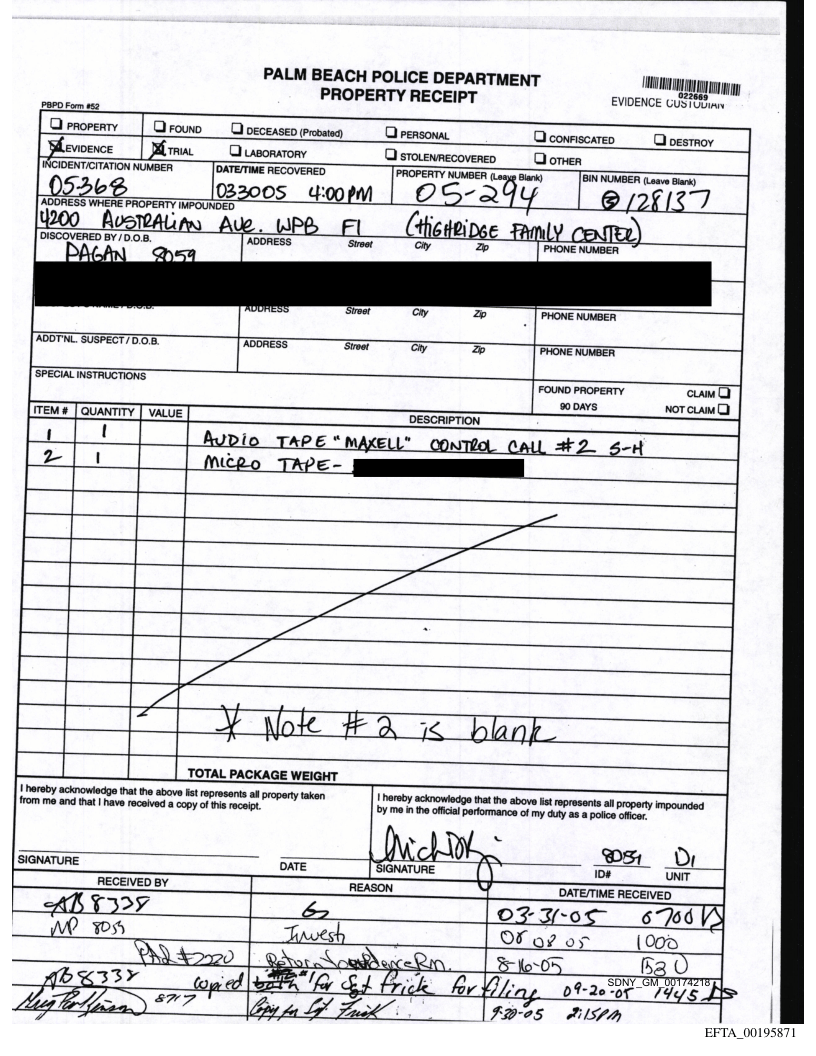 PALM BEACH POLICE DEPARTMENT
PROPERTY RECEIPT
022669
EVIDENCE CUSTODIAN
PBPD Form #52
PROPERTY FOUND DECEASED (Probated) PERSONAL CONFISCATED DESTROY
EVIDENCE TRIAL LABORATORY STOLEN/RECOVERED OTHER
INCIDENT/CITATION NUMBER DATE/TIME RECOVERED PROPERTY NUMBER (Leave Blank) BIN NUMBER (Leave Blank)
05368 033005 4:00PM 05-294 128137
ADDRESS WHERE PROPERTY IMPOUNDED
4200 AUSTRALIAN AVE. WPB Fl (HIGHRIDGE FAMILY CENTER)
DISCOVERED BY / D.O.B. ADDRESS Street City Zip PHONE NUMBER
PAGAN 8059
ADDRESS Street City Zip PHONE NUMBER
ADDT'NL. SUSPECT / D.O.B. ADDRESS Street City Zip PHONE NUMBER
SPECIAL INSTRUCTIONS FOUND PROPERTY CLAIM
90 DAYS NOT CLAIM
ITEM # QUANTITY VALUE DESCRIPTION
1 1 AUDIO TAPE "MAXELL" CONTROL CALL #2 S-H
2 1 MICRO TAPE-
* Note # 2 is blank
TOTAL PACKAGE WEIGHT
I hereby acknowledge that the above list represents all property taken
from me and that I have received a copy of this receipt.
I hereby acknowledge that the above list represents all property impounded
by me in the official performance of my duty as a police officer.
8059 D1
SIGNATURE DATE SIGNATURE ID# UNIT
RECEIVED BY REASON DATE/TIME RECEIVED
AB 8338 03-31-05 0700
MP 8059 Invest 08 08 05 1000
#7220 Return to evidence Rm. 8-16-05 1530
AB 8338 copied #1 for Sgt Frick for filing 09-20-05 1445
SDNY_GM_00174218
8717 Copy for Sgt. Frick 9-30-05 2:15PM
EFTA_00195871